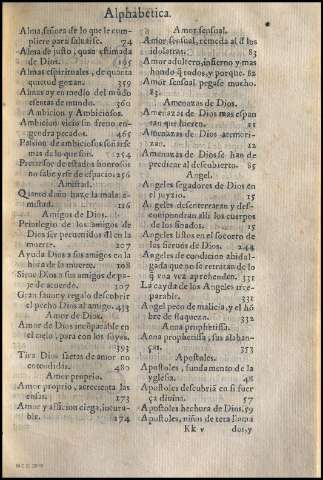 Alphabetica.
Alma, señora de lo que le cum-
pliere para saluarse. 74
Alma de justo, quan estimada
de Dios. 195
Almas espirituales, de quanta
quietud gozan 359
Almas ay en medio del mūdo
esentas de mundo. 360
Ambicion y Ambiciosos.
Ambicion vicio sin freno en-
gendra pecados. 465
Passion de ambiciosos soñarse
mas de lo que son. 254
Precursor de estados honrosos
no sabe yrse de espacio. 256
Amistad.
Quanto daño haze la mala a-
mistad. 116
Amigos de Dios.
Priuilegio de los amigos de
Dios ser preuenidos di en la
muerte. 207
Ayuda Dios a sus amigos en la
hora de la muerte. 108
Sirue Dios a sus amigos de pa-
je de acuerdo. 207
Gran fauor y regalo descubrir
el pecho Dios al amigo. 453
Amor de Dios.
Amor de Dios incōparable en
el cielo, para con los suyos.
393
Tira Dios saetas de amor no
entendidas. 480
Amor proprio.
Amor proprio, acrecienta las
cosas. 173
Amor y afficion ciega, incura-
ble. 174
Amor sensual.
Amor sensual, remeda al d los
idolatras. 83
Amor adultero, infierno y mas
hondo q̄ todos, y porque. 82
Amor sensual pegase mucho.
83.
Amenazas de Dios.
Amenazas de Dios mas espan
tan que hieren. 12
Amenazas de Dios atemori-
zan. 12
Amenazas de Dios se han de
predicar al descubierto. 85
Angel.
Angeles segadores de Dios en
el juyzio. 15
Angeles desenterraran y des-
compondran alli los cuerpos
de los finados. 15
Angeles listos en el socorro de
los sieruos de Dios. 244
Angeles de condicion ahidal-
gada que no se retratan de lo
q̄ vna vez aprehenden. 331
La cayda de los Angeles irre-
parable. 331
Angel peco de malicia, y el hō
bre de flaqueza. 332
Anna prophetissa.
Anna prophetissa, sus alaban-
ças. 353
Apostoles.
Apostoles, fundamento de la
yglesia. 48
Apostoles descubriā en si fuer
ça diuina. 57
Apostoles hechura de Dios. 59
Apostoles, niños de teta llama
Kk v dos, y